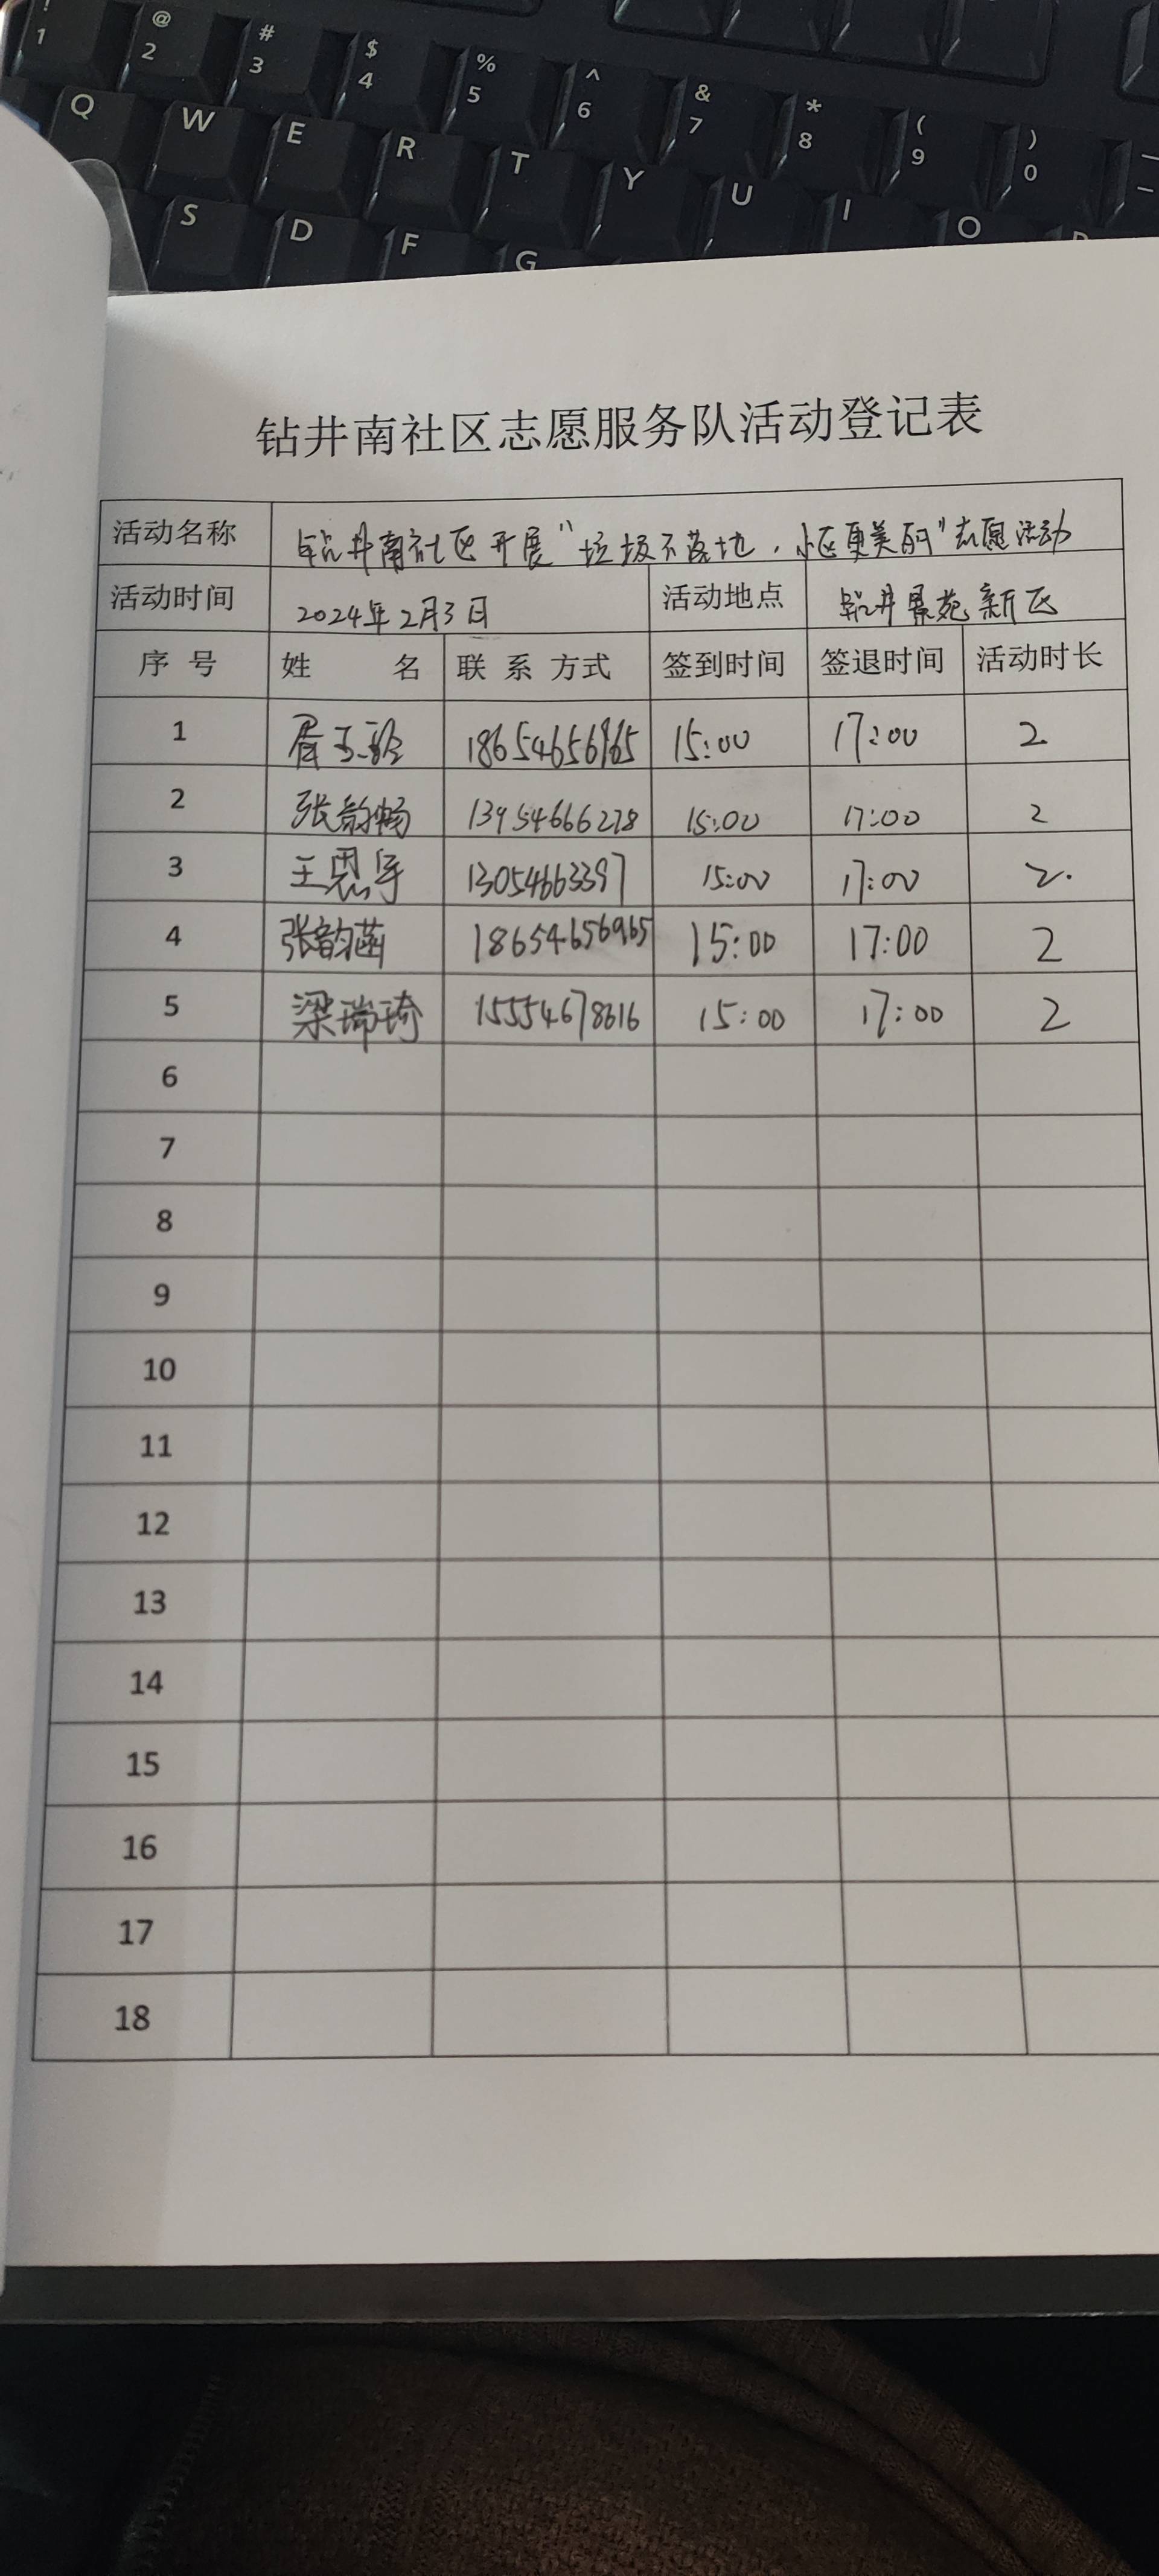 ! 1 @ 2 # 3 $ 4 % 5 ^ 6 & 7 * 8 ( 9 ) 0
Q W E R T Y U I O
S D F G
钻井南社区志愿服务队活动登记表
活动名称 钻井南社区开展"垃圾不落地,小区更美丽"志愿活动
活动时间 2024年2月3日 活动地点 钻井景苑新区
序号 姓名 联系方式 签到时间 签退时间 活动时长
1 18654656965 15:00 17:00 2
2 张韵畅 13954666278 15:00 17:00 2
3 王恩宇 13054663397 15:00 17:00 2.
4 张韵菡 18654656965 15:00 17:00 2
5 梁瑞琦 15554678616 15:00 17:00 2
6
7
8
9
10
11
12
13
14
15
16
17
18